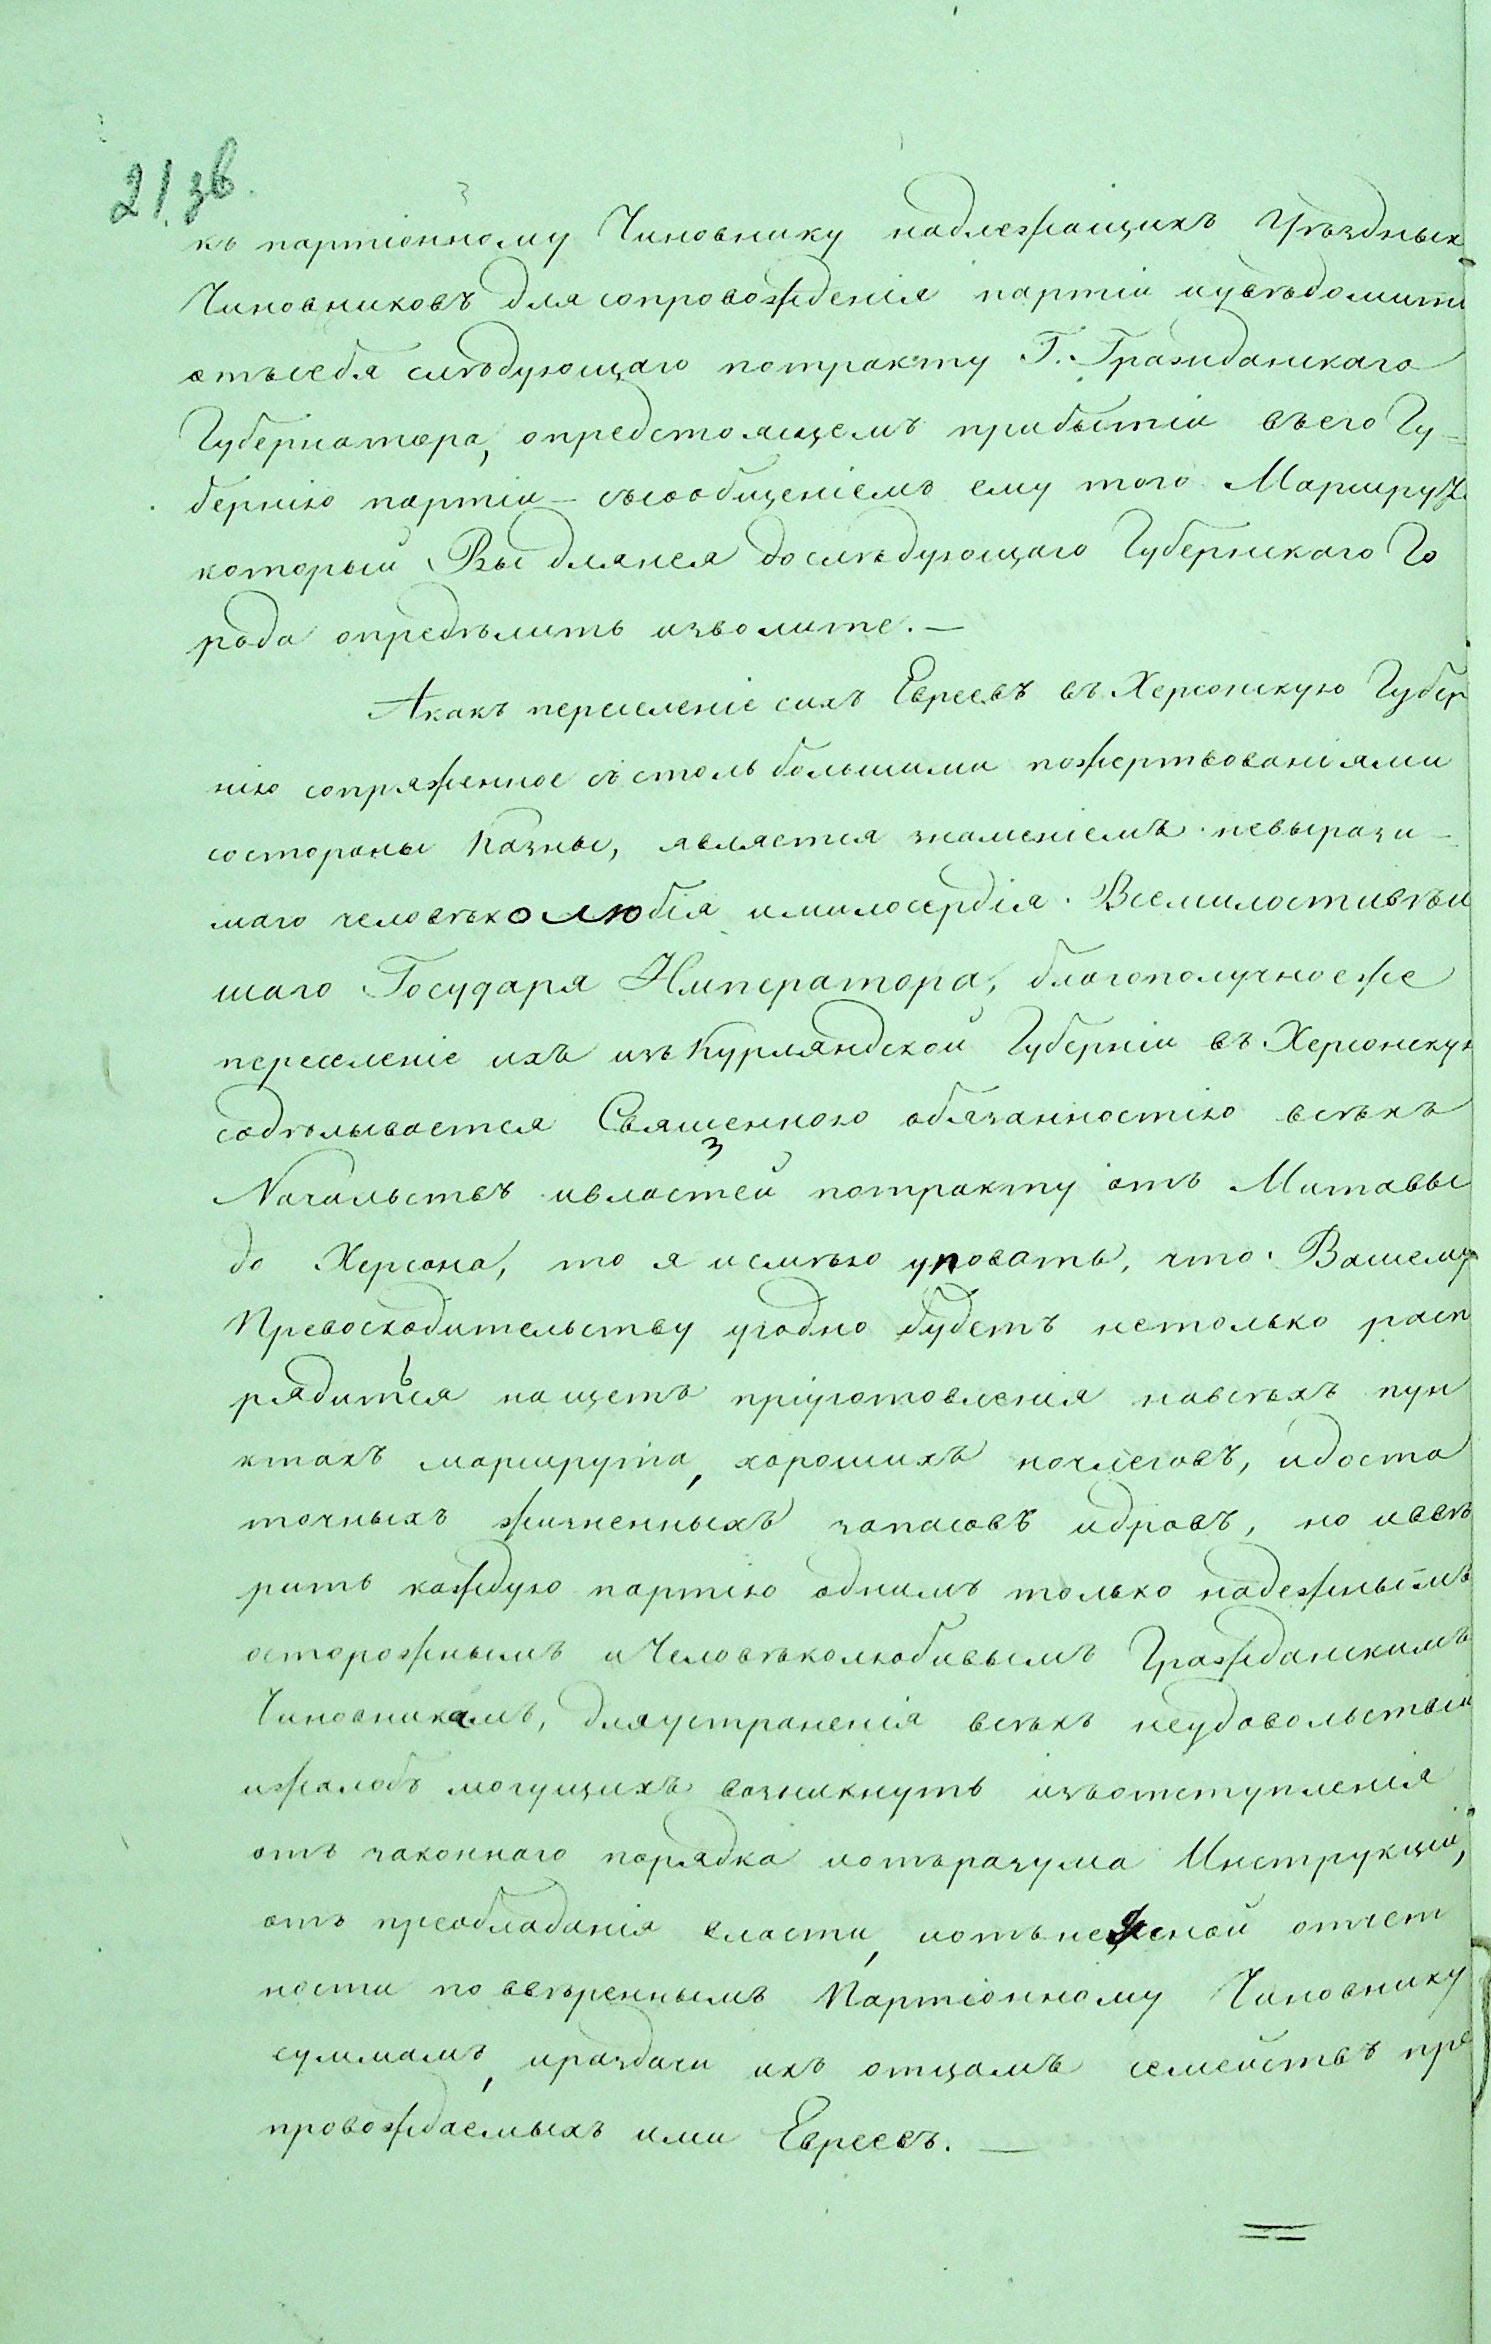 21 зв.
къ партіонному Чиновнику надлежащихъ Уѣздныхъ
Чиновниковъ для сопровожденія партіи иувѣдомить
отъсебя слѣдующаго потракту Г. Гражданскаго
Губернатора, опредстоящемъ прибытіи въего Гу-
бернію партіи – съсообщеніемъ ему того Маршрута
который Вы длянея дослѣдующаго Губернскаго Го
рода опредѣлить изволите. —
Акакъ переселеніе сихъ Евреевъ въ Херсонскую Губер
нію сопряженное съ столь большими пожертвованіями
состороны Казны, является знаменіемъ невырази-
маго человѣколюбія имилосердія Всемилостивѣй
шаго Государя Императора, благополучноеже
переселеніе ихъ изъ Курляндской Губерніи въ Херсонскую
содѣлывается Священною обязанностію всѣхъ
Начальствъ ивластей потракту отъ Митавы
до Херсона, то я исмѣю уповать, что Вашему
Превосходительству угодно будетъ нетолько расп
рядиться нащетъ пріуготовленія навсѣхъ пун
ктахъ маршрута, хорошихъ ночлеговъ, идоста
точныхъ жизненныхъ запасовъ идровъ, но иввѣ
рить каждую партію однимъ только надежнымъ
осторожнымъ иЧеловѣколюбивымъ Гражданскимъ
Чиновникамъ, дляустраненія всѣхъ неудовольствій
ижалобъ могущихъ возникнуть изъотступленія
отъ законнаго порядка иотъразума Инструкціи,
отъ преобладанія власти, иотънеясной отчет
ности по ввѣреннымъ Партіонному Чиновнику
суммамъ, ираздачи ихъ отцамъ семействъ пре
провождаемыхъ ими Евреевъ. —